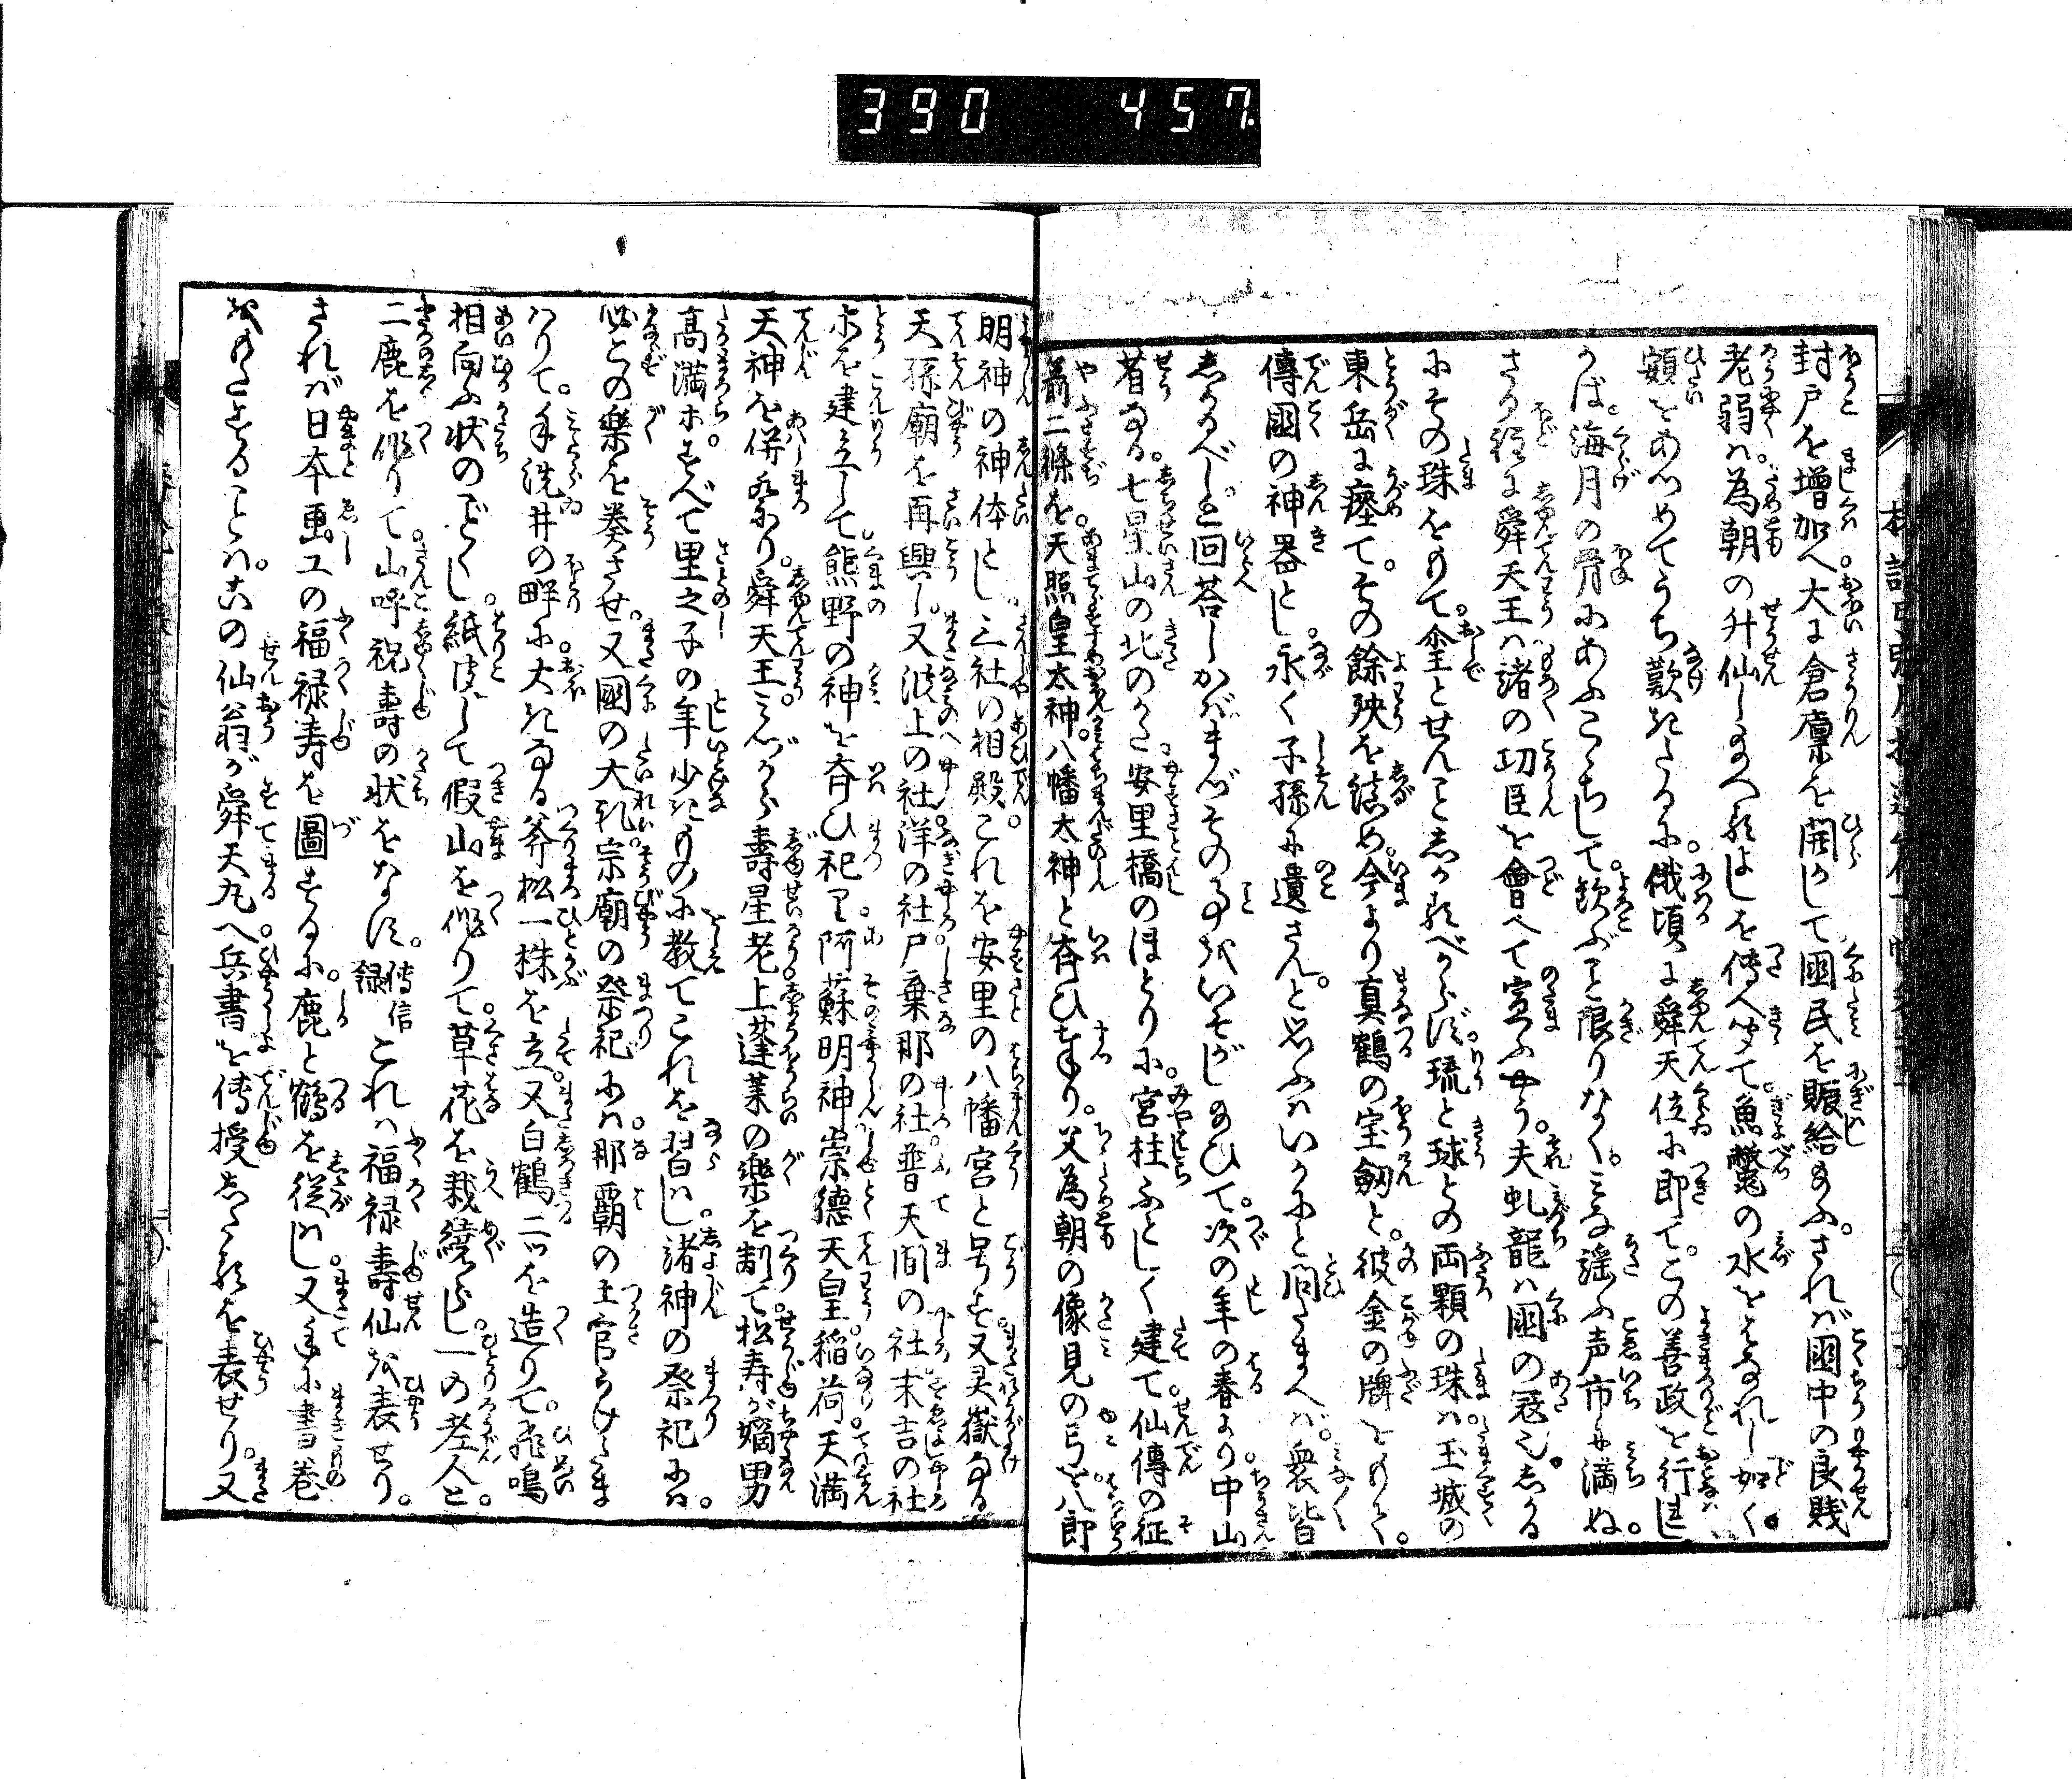 390 457.
封戸を増加へ大に倉廩を開かして国民を賑給ふ。されば国中の良賤
老弱は為朝の升仙し給へるよしを傳人聞て。魚鼈の水をはなれし如く。
額をあつめてうち歎きたるに。俄頃に舜天位に即て。この善政を行ししかば
海月の骨にあふこゝちして。歓ぶこと限りなく。みな謡ふ声市に満ぬ。
さる程に舜天王は諸の功臣を會へて宣ふやう。夫虬龍は国の冦也。しかる
にその珠をもて。傘とせんことしかるべからず。琉と球との両顆の珠は玉城の
東岳に瘞て。その餘殃を鎮め。今より真鶴の宝劔と。彼金の牌とをもて。
傳国の神器とし。永く子孫に遺さん。と思ふはいかにと問たまへば。衆皆
しかるべしと回荅しかばまづその事をいそがし給ひて。次の年の春より中山
省なる七星山の北のかた。安里橋のほとりに。宮柱ふとしく建て。仙傳の征
箭二條を。天照皇太神。八幡太神と斉ひまつり。父為朝の像見の弓を。八郎
明神の神体とし。三社の相殿。これを安里の八幡宮と号す。又灵嶽なる
天孫廟を再興し。又波上の社洋の社尸棄那の社。普天間の社末吉の社
ホを建立して。熊野の神を斉ひ祀り。阿蘇明神崇徳天皇。稲荷天満
天神を併祭り。舜天王みづから。壽星老上蓬莱の樂を制て。松寿が嫡男
高満ホすべて里之子の年少きものに教てこれを習し。諸神の祭祀には。
必この樂を奏させ。又国の大礼。宗廟の祭祀には。那覇の土官うけたま
はりて。手洗井の畔に。大きなる斧松一株を立。又白鶴二ッを造りて。飛鳴
相向ふ状のごとくし。紙皮して假山を作りて。草花を栽繞らし。一の老人と。
二鹿を作りて。山呼祝壽の状をなす。傳信録これは福禄壽仙を表せり。
されば日本画工の福禄寿を圖するに。鹿と鶴を従はし又手に書巻
をもたすることは。この仙翁が舜天丸へ兵書を傳授したるを表せり。又